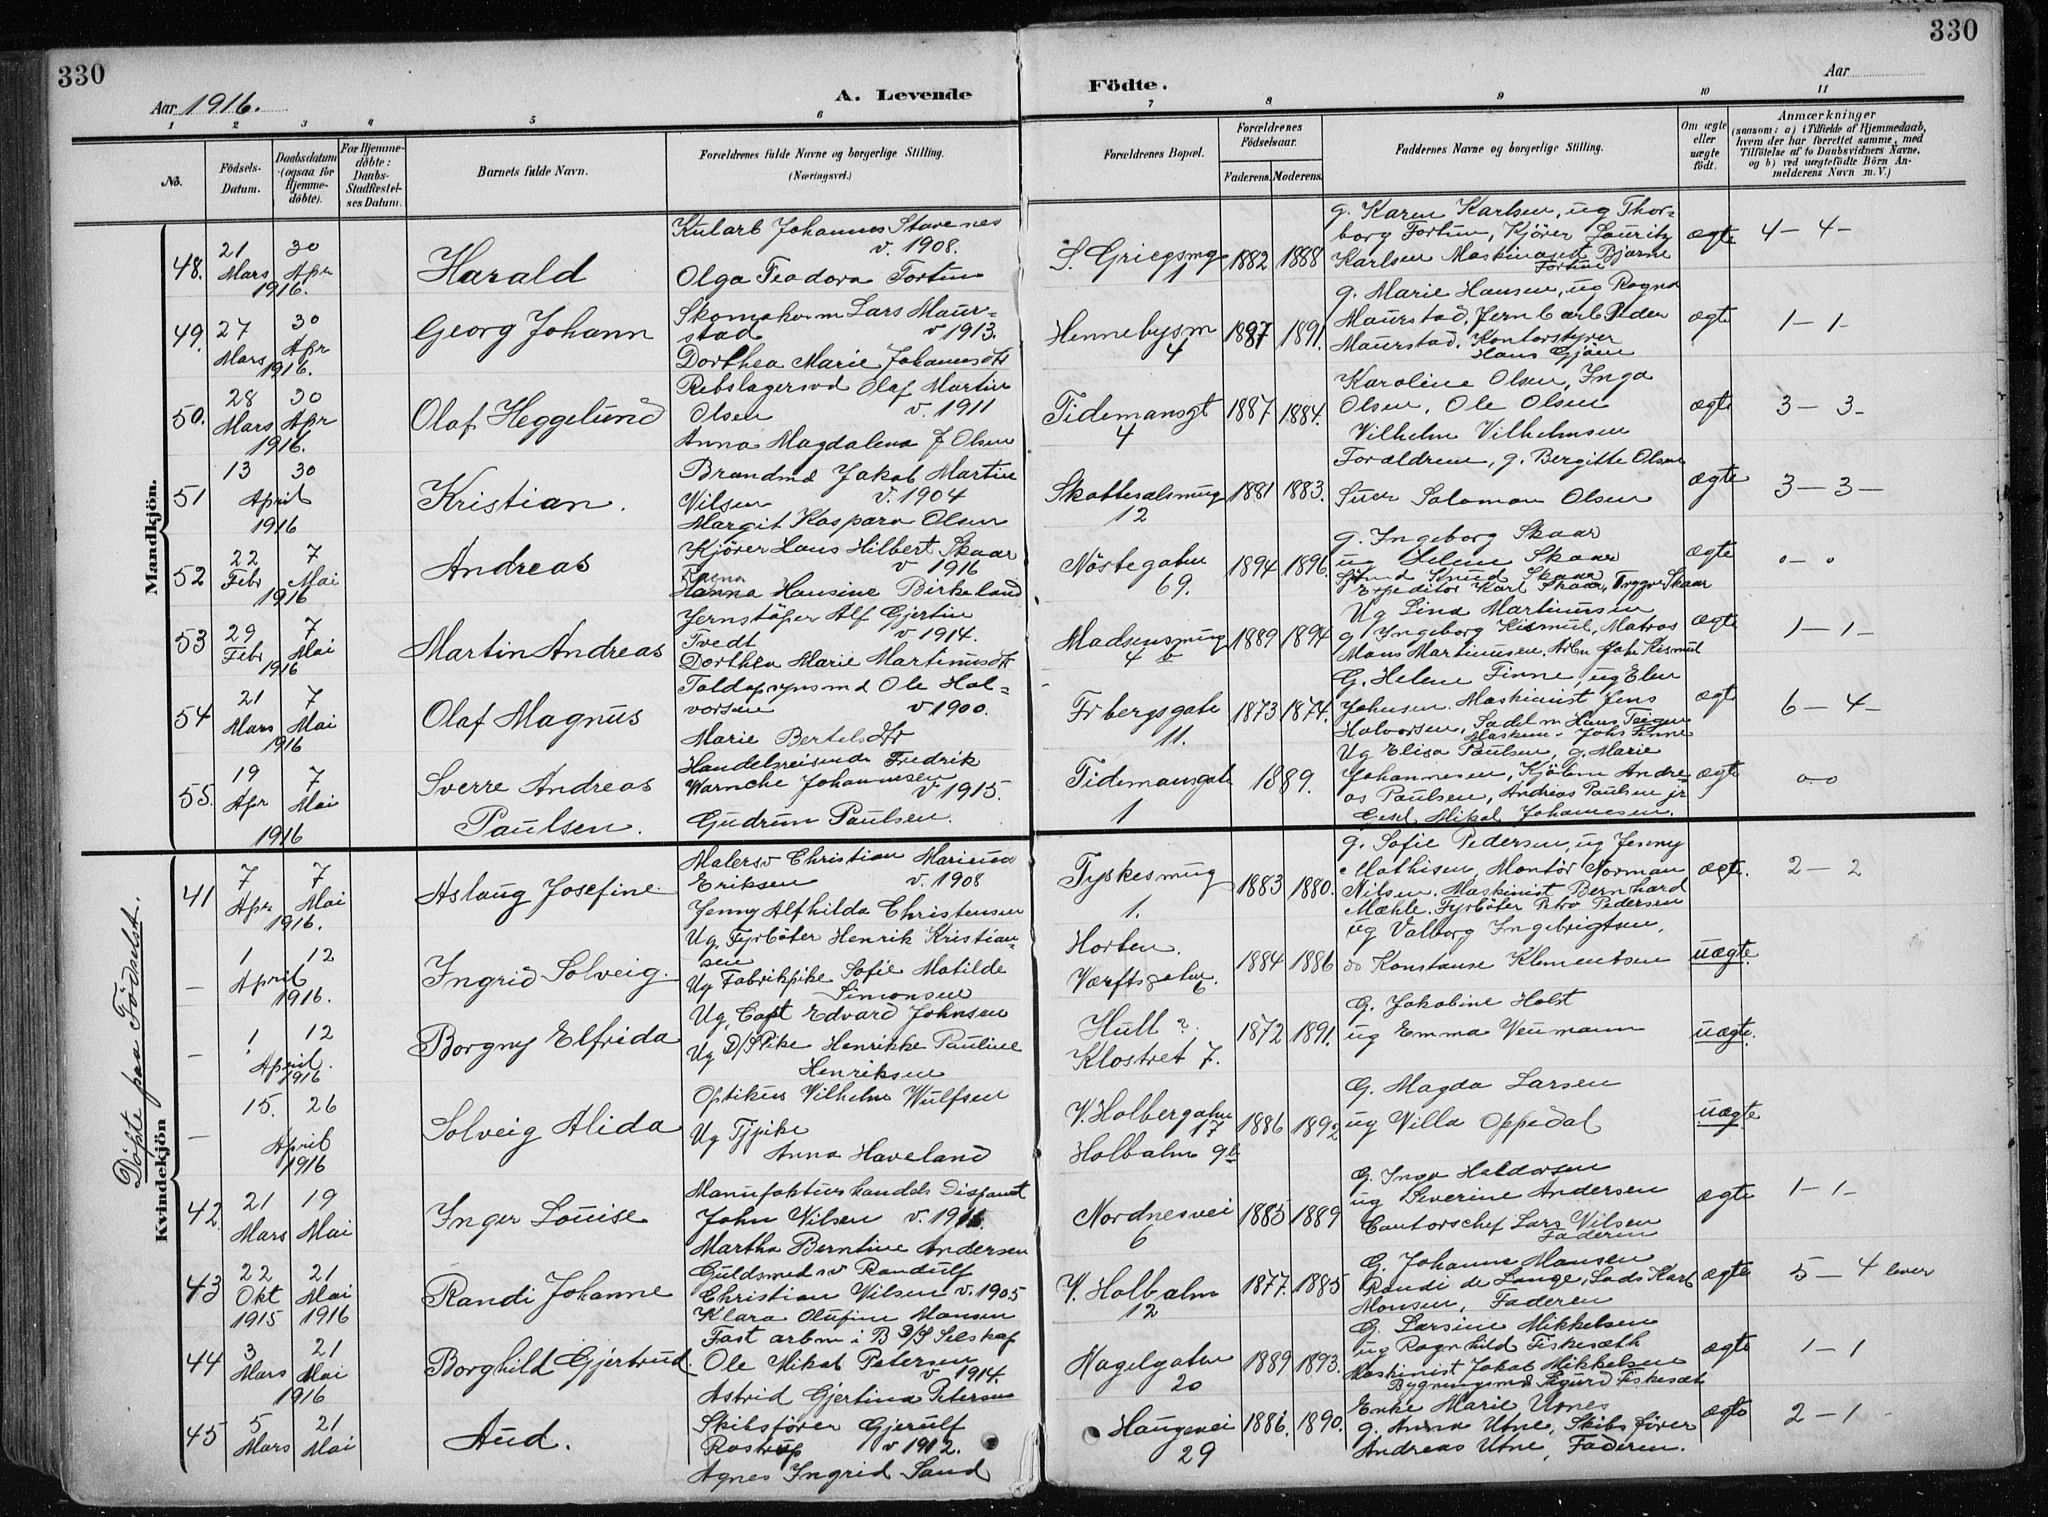 330
330
Aar 1916.
A. Levende
Födte.
Aar
1 2 3 4 5 6 7 8 9 10 11
No.
Födsels-
Datum.
Daabsdatum
(ogsaa for
Hjemme-
döbte).
For Hjemme-
döbte:
Daabs-
Stadfæstel-
ses Datum.
Barnets fulde Navn.
Forældrenes fulde Navne og borgerlige Stilling.
(Næringsvei.)
Forældrenes Bopæl.
Forældrenes
Födselsaar.
Faderens. Moderens.
Faddernes Navne og borgerlige Stilling.
Om ægte
eller
uægte
födt.
Anmærkninger
(saasom: a) i Tilfælde af Hjemmedaab,
hvem der har forrettet samme, med
Tilföielse af to Daabsvidners Navne,
og b) ved uægtefödte Börn An-
melderens Navn m. V.)
Mandkjön.
48. 21 Mars 30 Apr 1916.
Harald
Kularb Johannes Stavenes
v. 1908.
Olga Teodora Fortun
S. Griegsmg
1
1882 1888
g. Karen Karlsen, ug Thor-
borg Fortun, Kjörer Lauritz
Karlsen Maskinast Bjarne
Fortun
ægte
4 - 4 -
49. 27 Mars 30 Apr 1916.
Georg Johann
Skomakerm Lars Maur-
stad v 1913.
Dorthea Marie Johannesdtr
Hennebysm
4
1887 1891.
g. Marie Hansen, ug Ragna
Maurstad, Jern Carl Peder
Maurstad. Kontorstyrer
Hans Gjöen
ægte
1 - 1 -
50. 28 Mars 30 Apr 1916.
Olaf Heggelund
Rebslagersvd Olaf Martin
Olsen v. 1911
Anna Magdalena J Olsen
Tidemansgt
4
1887 1884.
Karoline Olsen, Inga
Olsen, Ole Olsen
Vilhelm Vilhelmsen
ægte
3 - 3 -
51 13 30 April 1916
Kristian.
Brandmd Jakob Martin
Nilsen v. 1904
Margit Kaspara Olsen
Skottesalsmug
12
1881 1883.
Forældrene, g. Bergitte Olsen
Siver Salomon Olsen
ægte
3 - 3 -
52 22 Febr 7 Mai 1916
Andreas
Kjörer Hans Hilbert Skaar
v 1916
Ragna
Hanna Hansine Birkeland
Nöstegaten
69.
1894 1896.
g. Ingeborg Skaar
ug Helene Skaar
Sjömd Knud Skaar
Expeditör Karl Skaar, Trygve Skaar
ægte
0 - 0
53 29 Febr 7 Mai 1916
Martin Andreas
Jernstöper Alf Gjertin
Tvedt v 1914.
Dorthea Marie Martinusdtr
Madsensmug
4 b
1889 1894
Ug Lina Martinusen
g. Ingeborg Kismul, Matros
Mons Martinusen. Arbm Johs Kismul
ægte
1 - 1 -
54 21 Mars 7 Mai 1916
Olaf Magnus
Toldopsynsmd Ole Hal-
vorsen v 1900.
Marie Bertelsdtr
Fr bergsgate
11.
1873 1874.
G. Helene Finne ug Elen
Johnsen. Maskinist Jens
Halvorsen, Sadelm Hans Teigen
Maskin. Johs Finne
ægt
6 - 4 -
55. 19 Apr 7 Mai 1916
Sverre Andreas
Paulsen.
Handelsreisende Fredrik
Warncke Johannesen
v 1915.
Gudrun Paulsen.
Tidemansgate
1
1889.
Ug Elisa Paulsen, g. Marie
Johannesen, Kjöbm Andre-
as Paulsen, Andreas Paulsen jr
Gesel Mikal Johannesen.
ægte
0-0
Döpte paa Födselst.
Kvindekjön
41 7 Apr 7 Mai 1916.
Aslaug Josefine
Malersv Christian Marieus
Eriksen v. 1908
Jenny Alfhilda Christensen
Tyskesmug
1.
1883 1880.
g. Sofie Pedersen, ug Jenny
Mathisen, Montör Norman
Nilsen, Maskinist Bernhard
Mæhle. Fyrböter Petro Pedersen
ægte.
2 - 2
- 1 12 April 1916.
Ingrid Solveig.
Ug. Fyrböter Henrik Kristian-
sen
Ug Fabrikpike Sofie Matilde
Simonsen
Horten.
Værftsgaten
6.
1884 1886
ug Valborg Ingebrigtsen,
do Konstanse Klementsen
uægte.
- 1 12 April 1916
Borgny Elfrida
Ug. Capt Edvard Johnsen
Ug D/SPike Henrikke Pauline
Henriksen
Hull ?
Klostret 7.
1872 1891.
G. Jakobine Holst
ug Emma Neumann
uægte.
- 15. 26 April 1916
Solveig Alida
Optikus Vilhelm Wulfsen
Ug Tjpike
Anna Haveland
V. Holbergalm
17
Holbalm 9b
1886 1892
G. Magda Larsen
ug Villa Oppedal
uægte
42. 21 Mars 19 Mai
Inger Louise
Manufakturhandels Disponent
John Nilsen v. 1911.
Martha Berntine Andersen
Nordnesvei
6
1885 1889
G. Inga Haldorsen
ug Severine Andersen
Contorschef Lars Nilsen
Faderen
ægte
1 - 1 -
43 22 Okt 1915 21 Mai 1916
Randi Johanne
Guldsmed sv Randulf
Christian Nilsen v. 1905
Klara Olufine Monsen
V. Holbalm
12
1877. 1885
G. Johanne Monsen
Randi de Lange, Lods Karl
Monsen, Faderen
ægte
5 - 4 lever
44 3 Mars 21 Mai 1916
Borghild Gjertrud.
Fast arbm i B D/S Selskap
Ole Mikal Petersen
v 1914.
Astrid Gjertina Petersen
Hagelgaten
20
1889 1893.
G. Larsine Mikkelsen
ug Ragnhild Fiskesæth
Maskinist Jakob Mikkelsen
Bygningsmd Sigurd Fiskesæt
ægte
1 - 1
45 5 Mars 21 Mai
Aud.
Skibsförer Gjerulf
Rostrup v 1912.
Agnes Ingrid Sand
Haugevei
29
1886. 1890.
Enke Marie Utnes
g. Anna Utne, Skibsförer
Andreas Utne, Faderen.
ægte
2 - 1